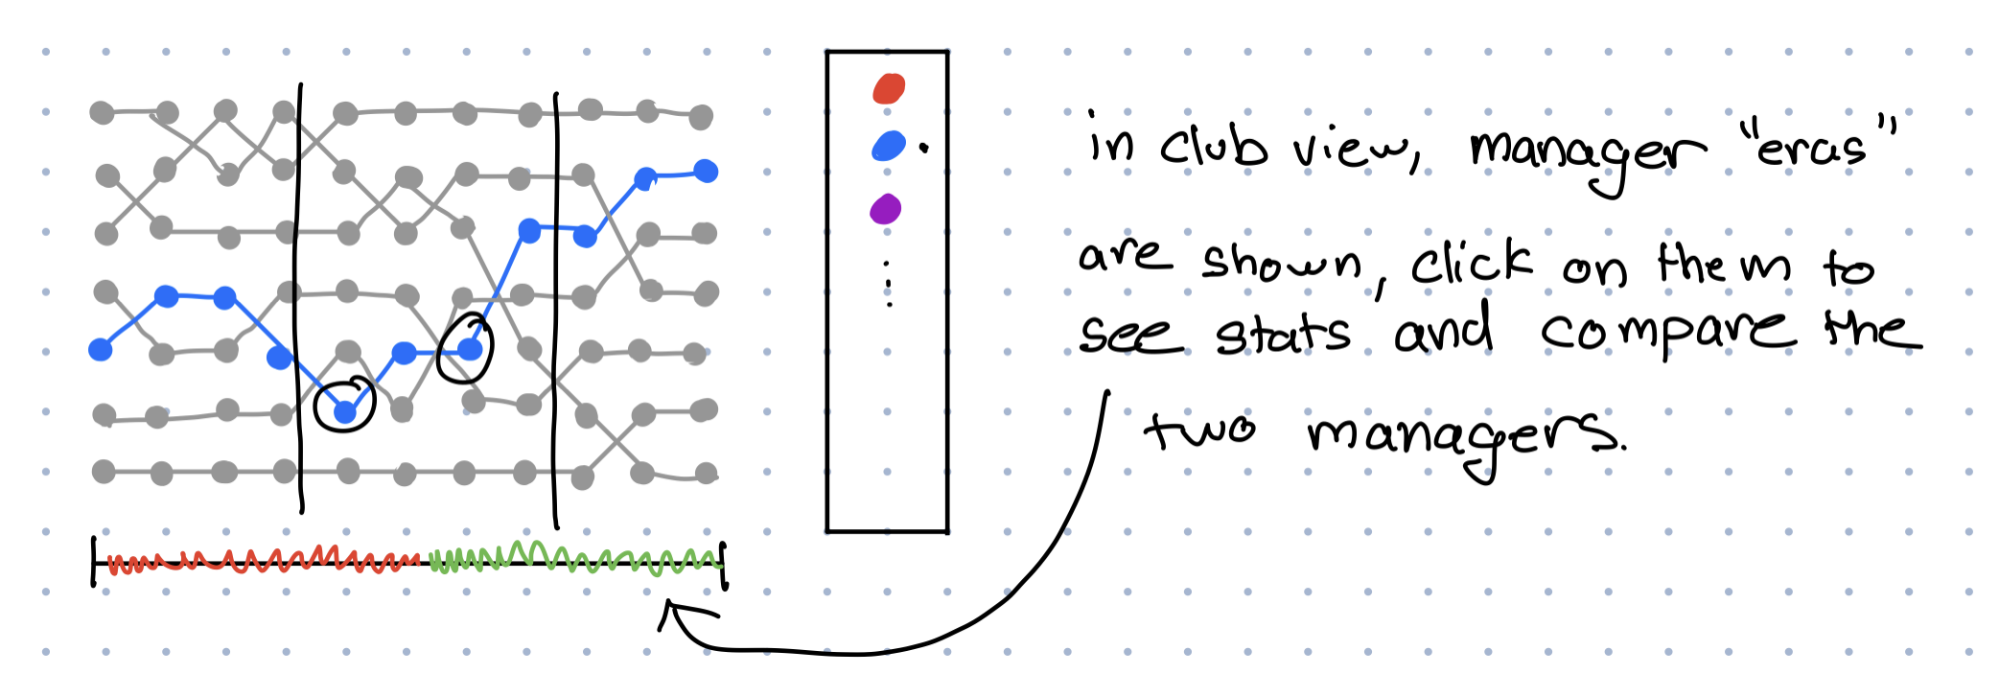 in club view, manager "eras"
are shown, click on them to
see stats and compare the
two managers.